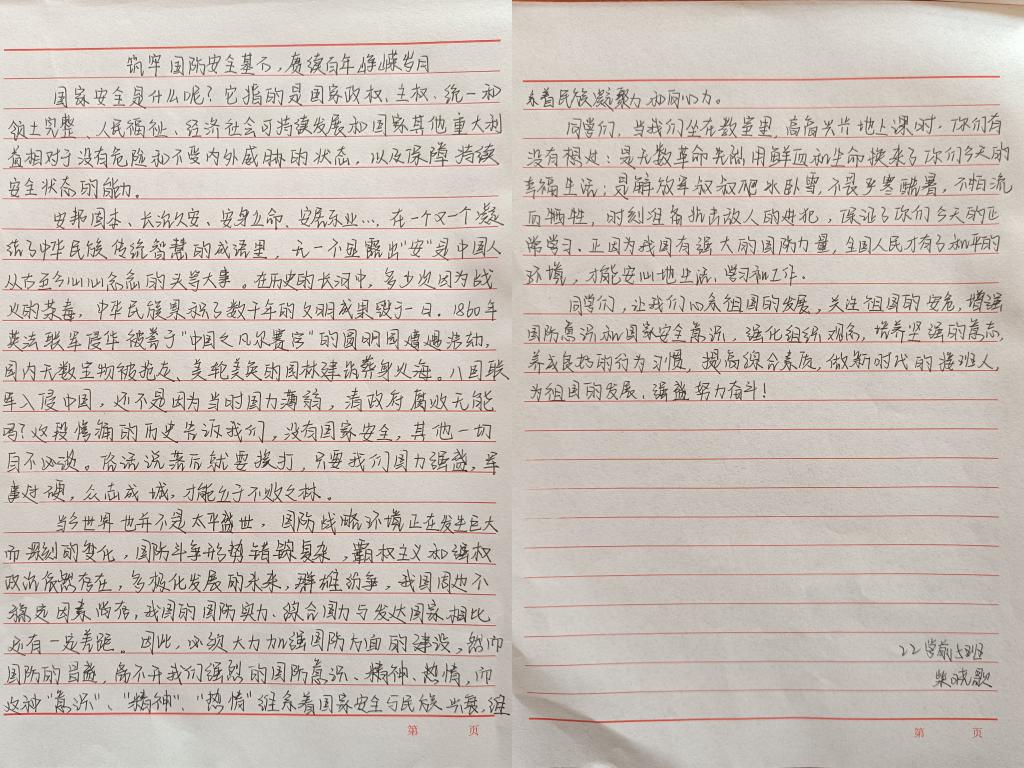 筑牢国防安全基石,赓续百年峥嵘岁月
国家安全是什么呢?它指的是国家政权、主权、统一和
领土完整、人民福祉、经济社会可持续发展和国家其他重大利
益相对于没有危险和不受内外威胁的状态,以及保障持续
安全状态的能力。
安邦固本、长治久安、安身立命、安居乐业…在一个又一个凝
结了中华民族传统智慧的成语里,无一不显露出"安"是中国人
从古至今心心念念的头等大事。在历史的长河中,多少次因为战
火的荼毒,中华民族累积了数千年的文明成果毁于一旦。1860年
英法联军侵华被誉于"中国之凡尔赛宫"的圆明园遭遇浩劫,
园内无数宝物被抢夺、美轮美奂的园林建筑葬身火海。八国联
军入侵中国,还不是因为当时国力薄弱,清政府腐败无能
吗?这段惨痛的历史告诉我们,没有国家安全,其他一切
自不必谈。俗话说落后就要挨打,只要我们国力强盛,军
事过硬,众志成城,才能立于不败之林。
当今世界也并不是太平盛世,国防战略环境正在发生巨大
而深刻的变化,国防斗争形势错综复杂,霸权主义和强权
政治依然存在,多极化发展的未来,群雄纷争,我国周边不
稳定因素尚存,我国的国防实力、综合国力与发达国家相比
还有一定差距。因此,必须大力加强国防方面的建设,然而
国防的昌盛,离不开我们强烈的国防意识、精神、热情,而
这种"意识"、"精神"、"热情"维系着国家安全与民族兴衰,维
系着民族凝聚力和向心力。
同学们,当我们坐在教室里,高高兴兴地上课时,你们有
没有想过:是无数革命先烈用鲜血和生命换来了你们今天的
幸福生活;是解放军叔叔爬冰卧雪,不畏严寒酷暑,不怕流
血牺牲,时刻准备抗击敌人的侵犯,保证了你们今天的正
常学习.正因为我国有强大的国防力量,全国人民才有了和平的
环境,才能安心地生活、学习和工作.
同学们,让我们心系祖国的发展,关注祖国的安危,增强
国防意识和国家安全意识,强化组织观念,培养坚强的意志,
养成良好的行为习惯,提高综合素质,做新时代的接班人,
为祖国的发展、强盛努力奋斗!
22学前5班
柴晓歌
第 页
第 页